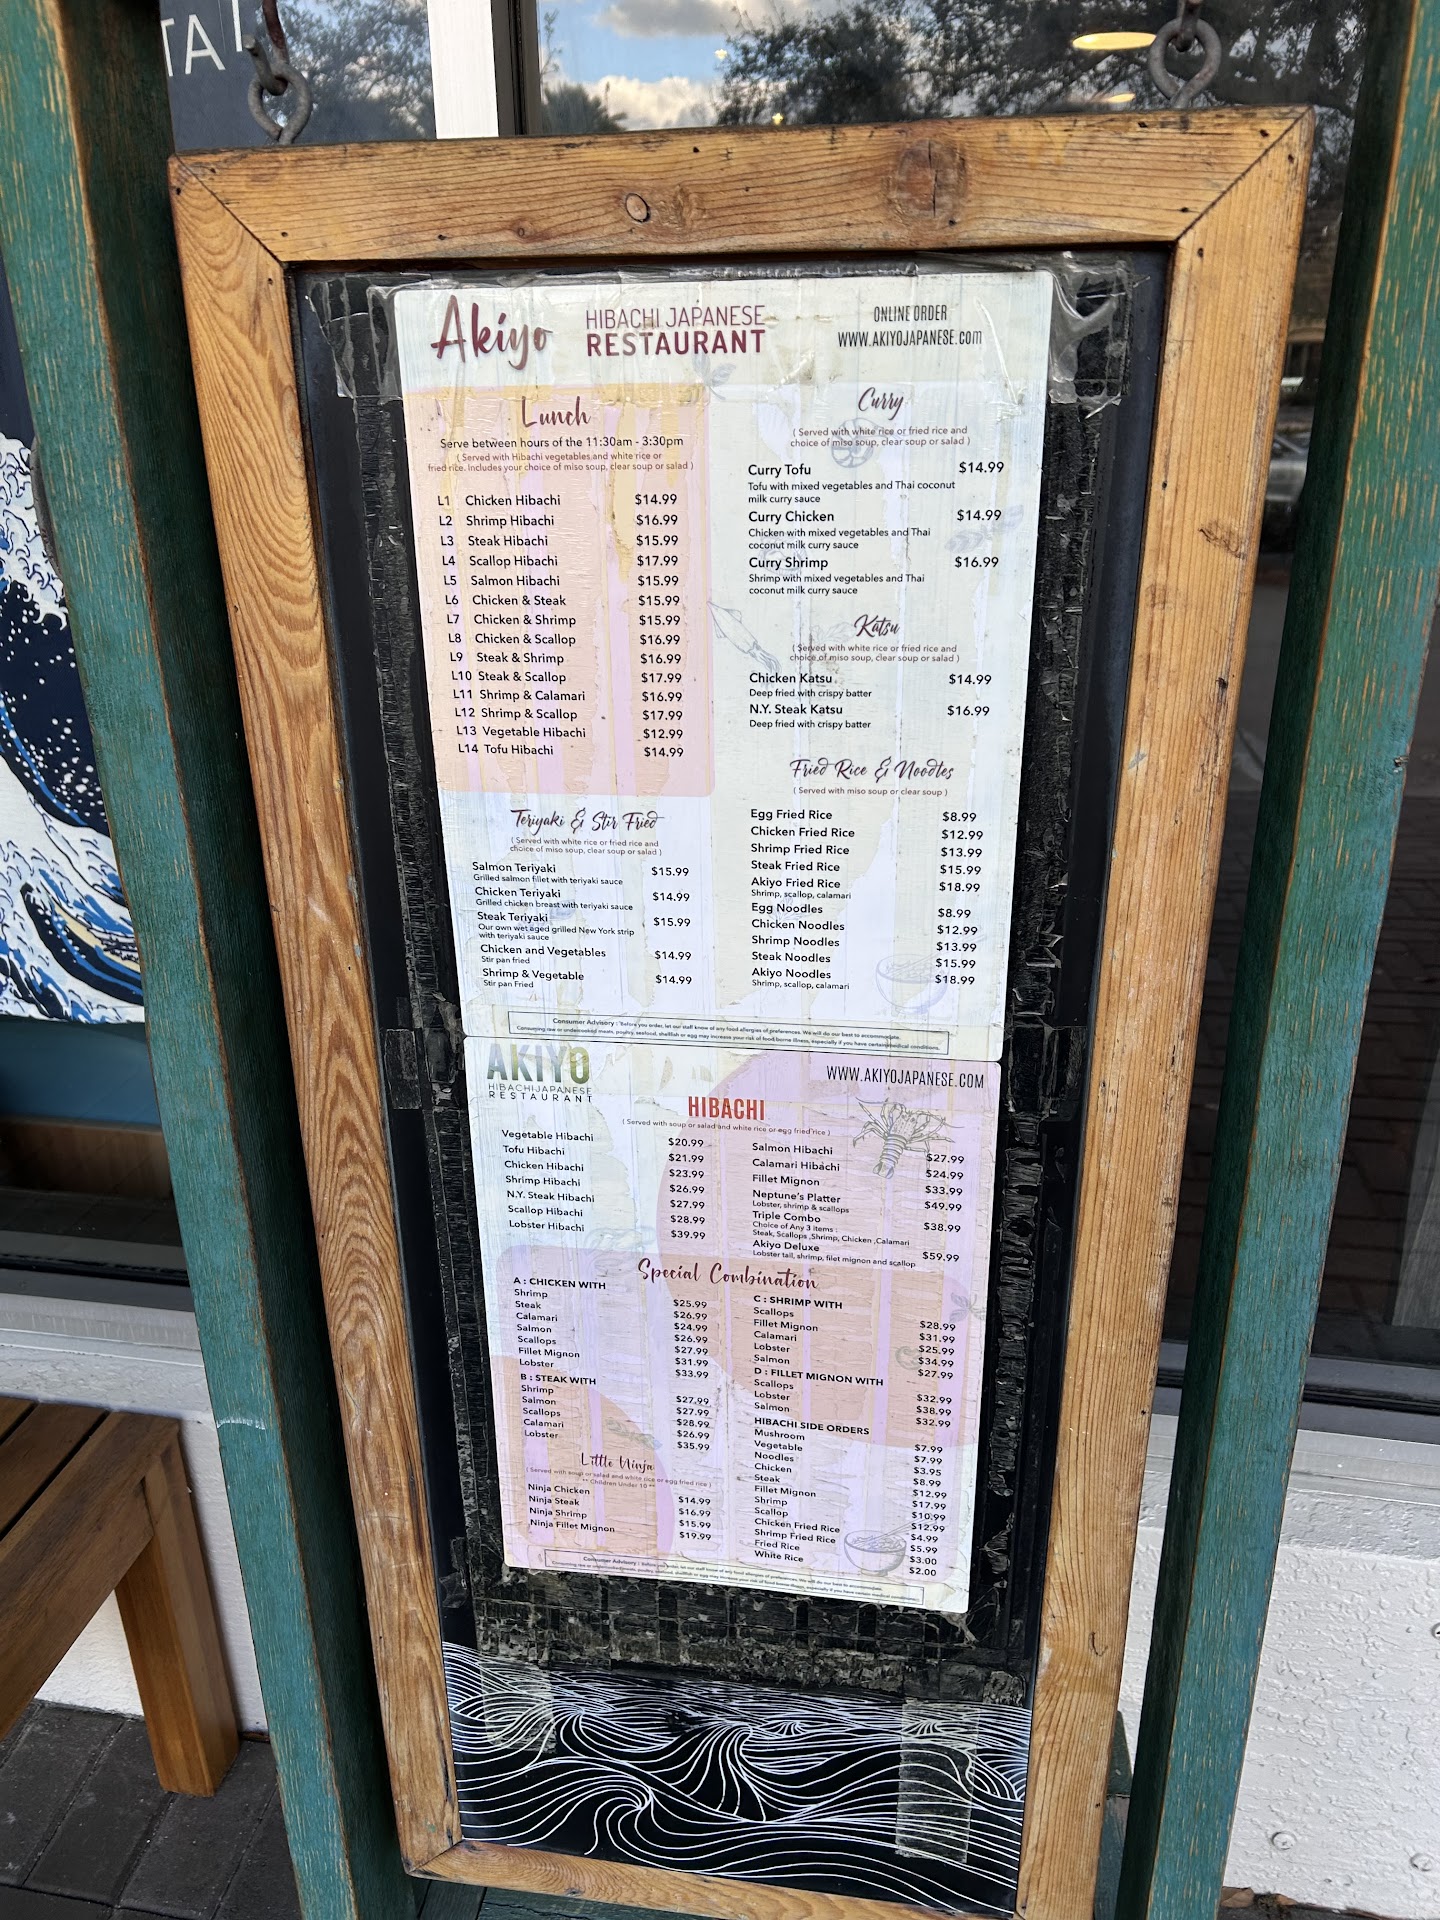 TAT
Akiyo
HIBACHI JAPANESE
RESTAURANT
ONLINE ORDER
WWW.AKIYOJAPANESE.com
Lunch
Serve between hours of the 11:30am - 3:30pm
( Served with Hibachi vegetables and white rice or
fried rice. Includes your choice of miso soup, clear soup or salad )
L1 Chicken Hibachi $14.99
L2 Shrimp Hibachi $16.99
L3 Steak Hibachi $15.99
L4 Scallop Hibachi $17.99
L5 Salmon Hibachi $15.99
L6 Chicken & Steak $15.99
L7 Chicken & Shrimp $15.99
L8 Chicken & Scallop $16.99
L9 Steak & Shrimp $16.99
L10 Steak & Scallop $17.99
L11 Shrimp & Calamari $16.99
L12 Shrimp & Scallop $17.99
L13 Vegetable Hibachi $12.99
L14 Tofu Hibachi $14.99
Teriyaki & Stir Fried
( Served with white rice or fried rice and
choice of miso soup, clear soup or salad )
Salmon Teriyaki $15.99
Grilled salmon fillet with teriyaki sauce
Chicken Teriyaki $14.99
Grilled chicken breast with teriyaki sauce
Steak Teriyaki $15.99
Our own wet aged grilled New York strip
with teriyaki sauce
Chicken and Vegetables $14.99
Stir pan fried
Shrimp & Vegetable $14.99
Stir pan Fried
Curry
( Served with white rice or fried rice and
choice of miso soup, clear soup or salad )
Curry Tofu $14.99
Tofu with mixed vegetables and Thai coconut
milk curry sauce
Curry Chicken $14.99
Chicken with mixed vegetables and Thai
coconut milk curry sauce
Curry Shrimp $16.99
Shrimp with mixed vegetables and Thai
coconut milk curry sauce
Katsu
( Served with white rice or fried rice and
choice of miso soup, clear soup or salad )
Chicken Katsu $14.99
Deep fried with crispy batter
N.Y. Steak Katsu $16.99
Deep fried with crispy batter
Fried Rice & Noodles
( Served with miso soup or clear soup )
Egg Fried Rice $8.99
Chicken Fried Rice $12.99
Shrimp Fried Rice $13.99
Steak Fried Rice $15.99
Akiyo Fried Rice $18.99
Shrimp, scallop, calamari
Egg Noodles $8.99
Chicken Noodles $12.99
Shrimp Noodles $13.99
Steak Noodles $15.99
Akiyo Noodles $18.99
Shrimp, scallop, calamari
Consumer Advisory : Before you order, let our staff know of any food allergies of preferences. We will do our best to accommodate.
Consuming raw or undercooked meats, poultry, seafood, shellfish or egg may increase your risk of food borne illness, especially if you have certain medical conditions.
AKIYO
HIBACHI JAPANESE
RESTAURANT
WWW.AKIYOJAPANESE.COM
HIBACHI
( Served with soup or salad and white rice or egg fried rice )
Vegetable Hibachi $20.99
Tofu Hibachi $21.99
Chicken Hibachi $23.99
Shrimp Hibachi $26.99
N.Y. Steak Hibachi $27.99
Scallop Hibachi $28.99
Lobster Hibachi $39.99
Salmon Hibachi $27.99
Calamari Hibachi $24.99
Fillet Mignon $33.99
Neptune's Platter $49.99
Lobster, shrimp & scallops
Triple Combo $38.99
Choice of Any 3 items :
Steak, Scallops ,Shrimp, Chicken ,Calamari
Akiyo Deluxe $59.99
Lobster tail, shrimp, filet mignon and scallop
Special Combination
A : CHICKEN WITH
Shrimp $25.99
Steak $26.99
Calamari $24.99
Salmon $26.99
Scallops $27.99
Fillet Mignon $31.99
Lobster $33.99
B : STEAK WITH
Shrimp $27.99
Salmon $27.99
Scallops $28.99
Calamari $26.99
Lobster $35.99
Little Ninja
( Served with soup or salad and white rice or egg fried rice )
** Children Under 10 **
Ninja Chicken $14.99
Ninja Steak $16.99
Ninja Shrimp $15.99
Ninja Fillet Mignon $19.99
C : SHRIMP WITH
Scallops $28.99
Fillet Mignon $31.99
Calamari $25.99
Lobster $34.99
Salmon $27.99
D : FILLET MIGNON WITH
Scallops $32.99
Lobster $38.99
Salmon $32.99
HIBACHI SIDE ORDERS
Mushroom $7.99
Vegetable $7.99
Noodles $3.95
Chicken $8.99
Steak $12.99
Fillet Mignon $17.99
Shrimp $10.99
Scallop $12.99
Chicken Fried Rice $4.99
Shrimp Fried Rice $5.99
Fried Rice $3.00
White Rice $2.00
Consumer Advisory : Before you order, let our staff know of any food allergies of preferences. We will do our best to accommodate.
Consuming raw or undercooked meats, poultry, seafood, shellfish or egg may increase your risk of food borne illness, especially if you have certain medical conditions.